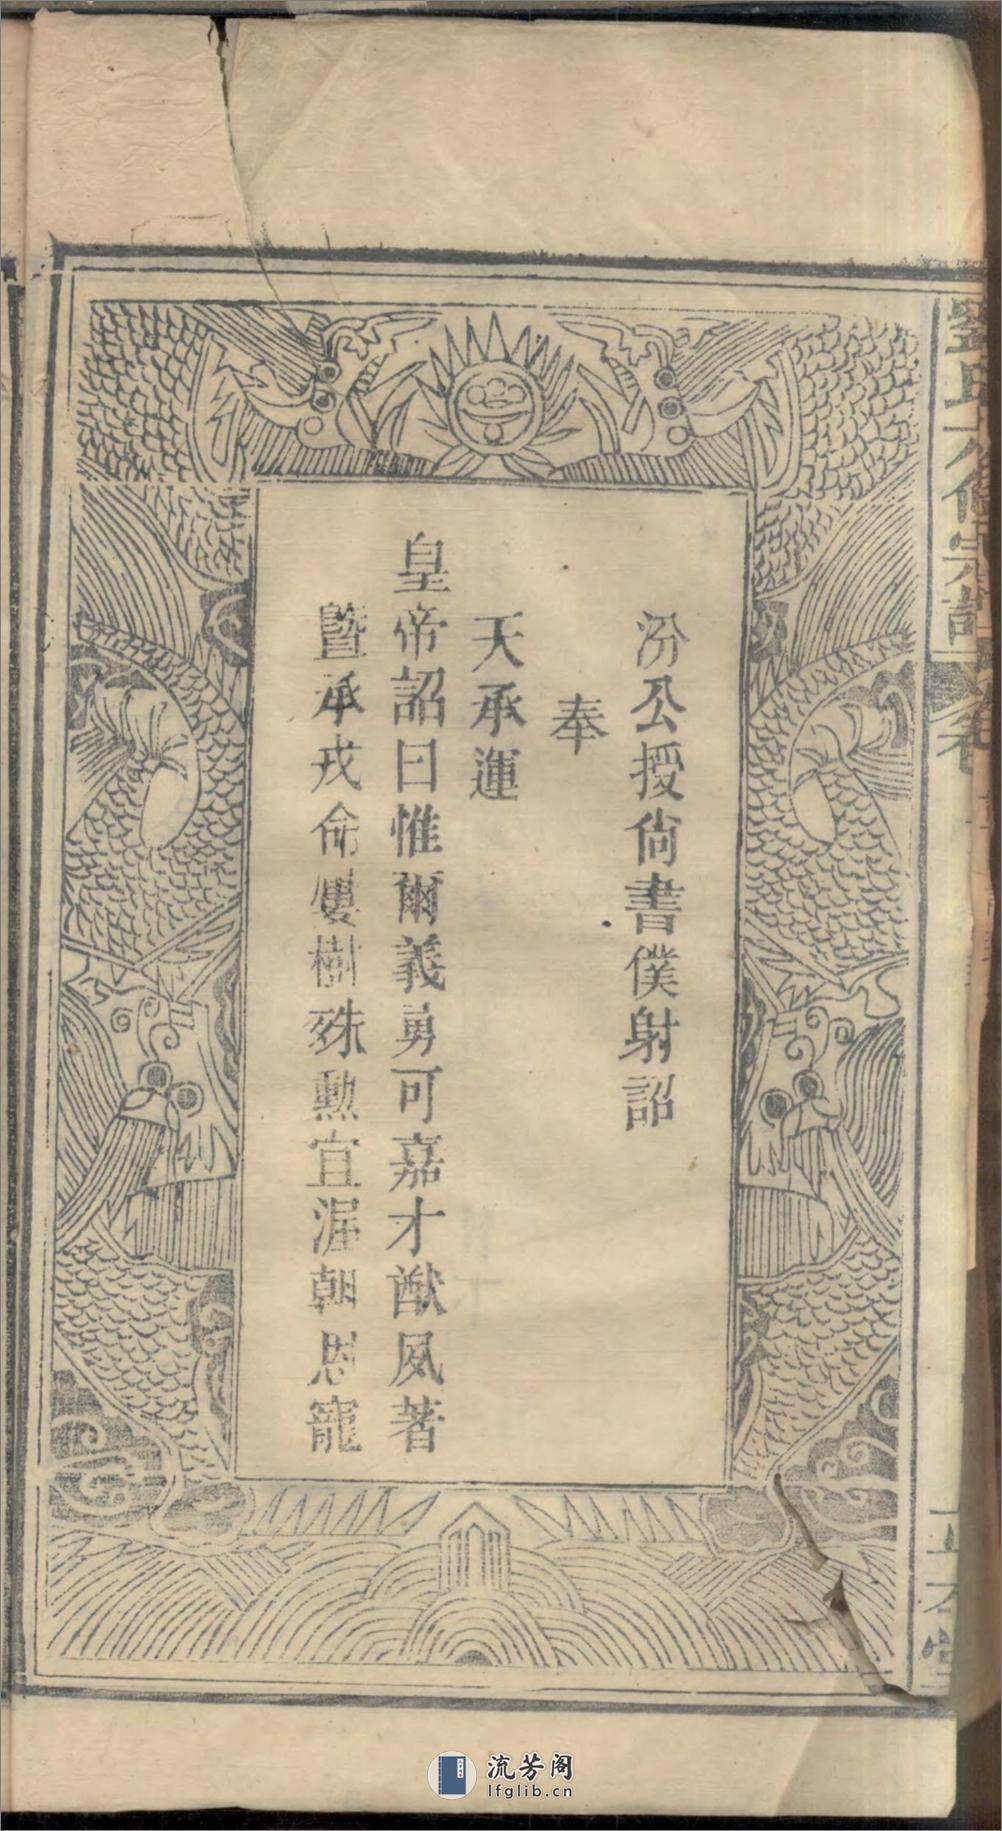 汾公授尙書僕射詔
奉
天承運
皇帝詔曰惟爾義勇可嘉才猷夙著
暨承戎命僂樹殊勳宜渥朝恩寵
流芳阁
lfglib.cn